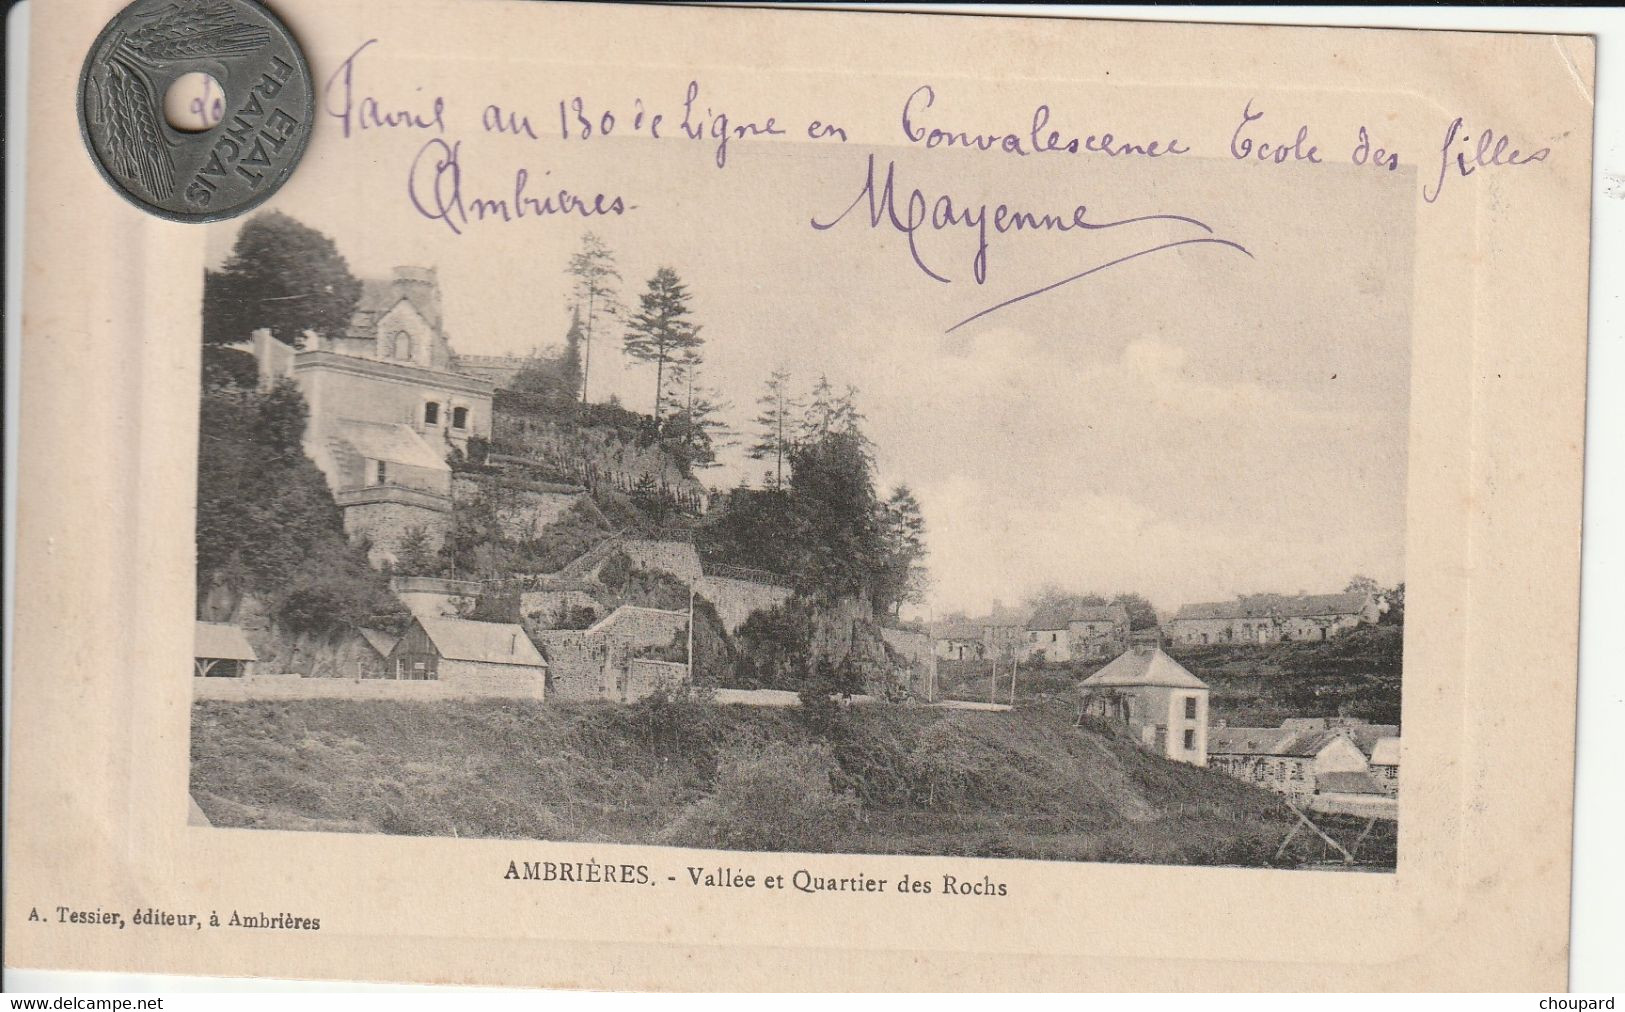 ETAT
FRANÇAIS
Favril au 130 de Ligne en Convalescence Ecole des filles
Ambrieres. Mayenne
AMBRIÈRES. - Vallée et Quartier des Rochs
A. Tessier, éditeur, à Ambrières
www.delcampe.net
choupard